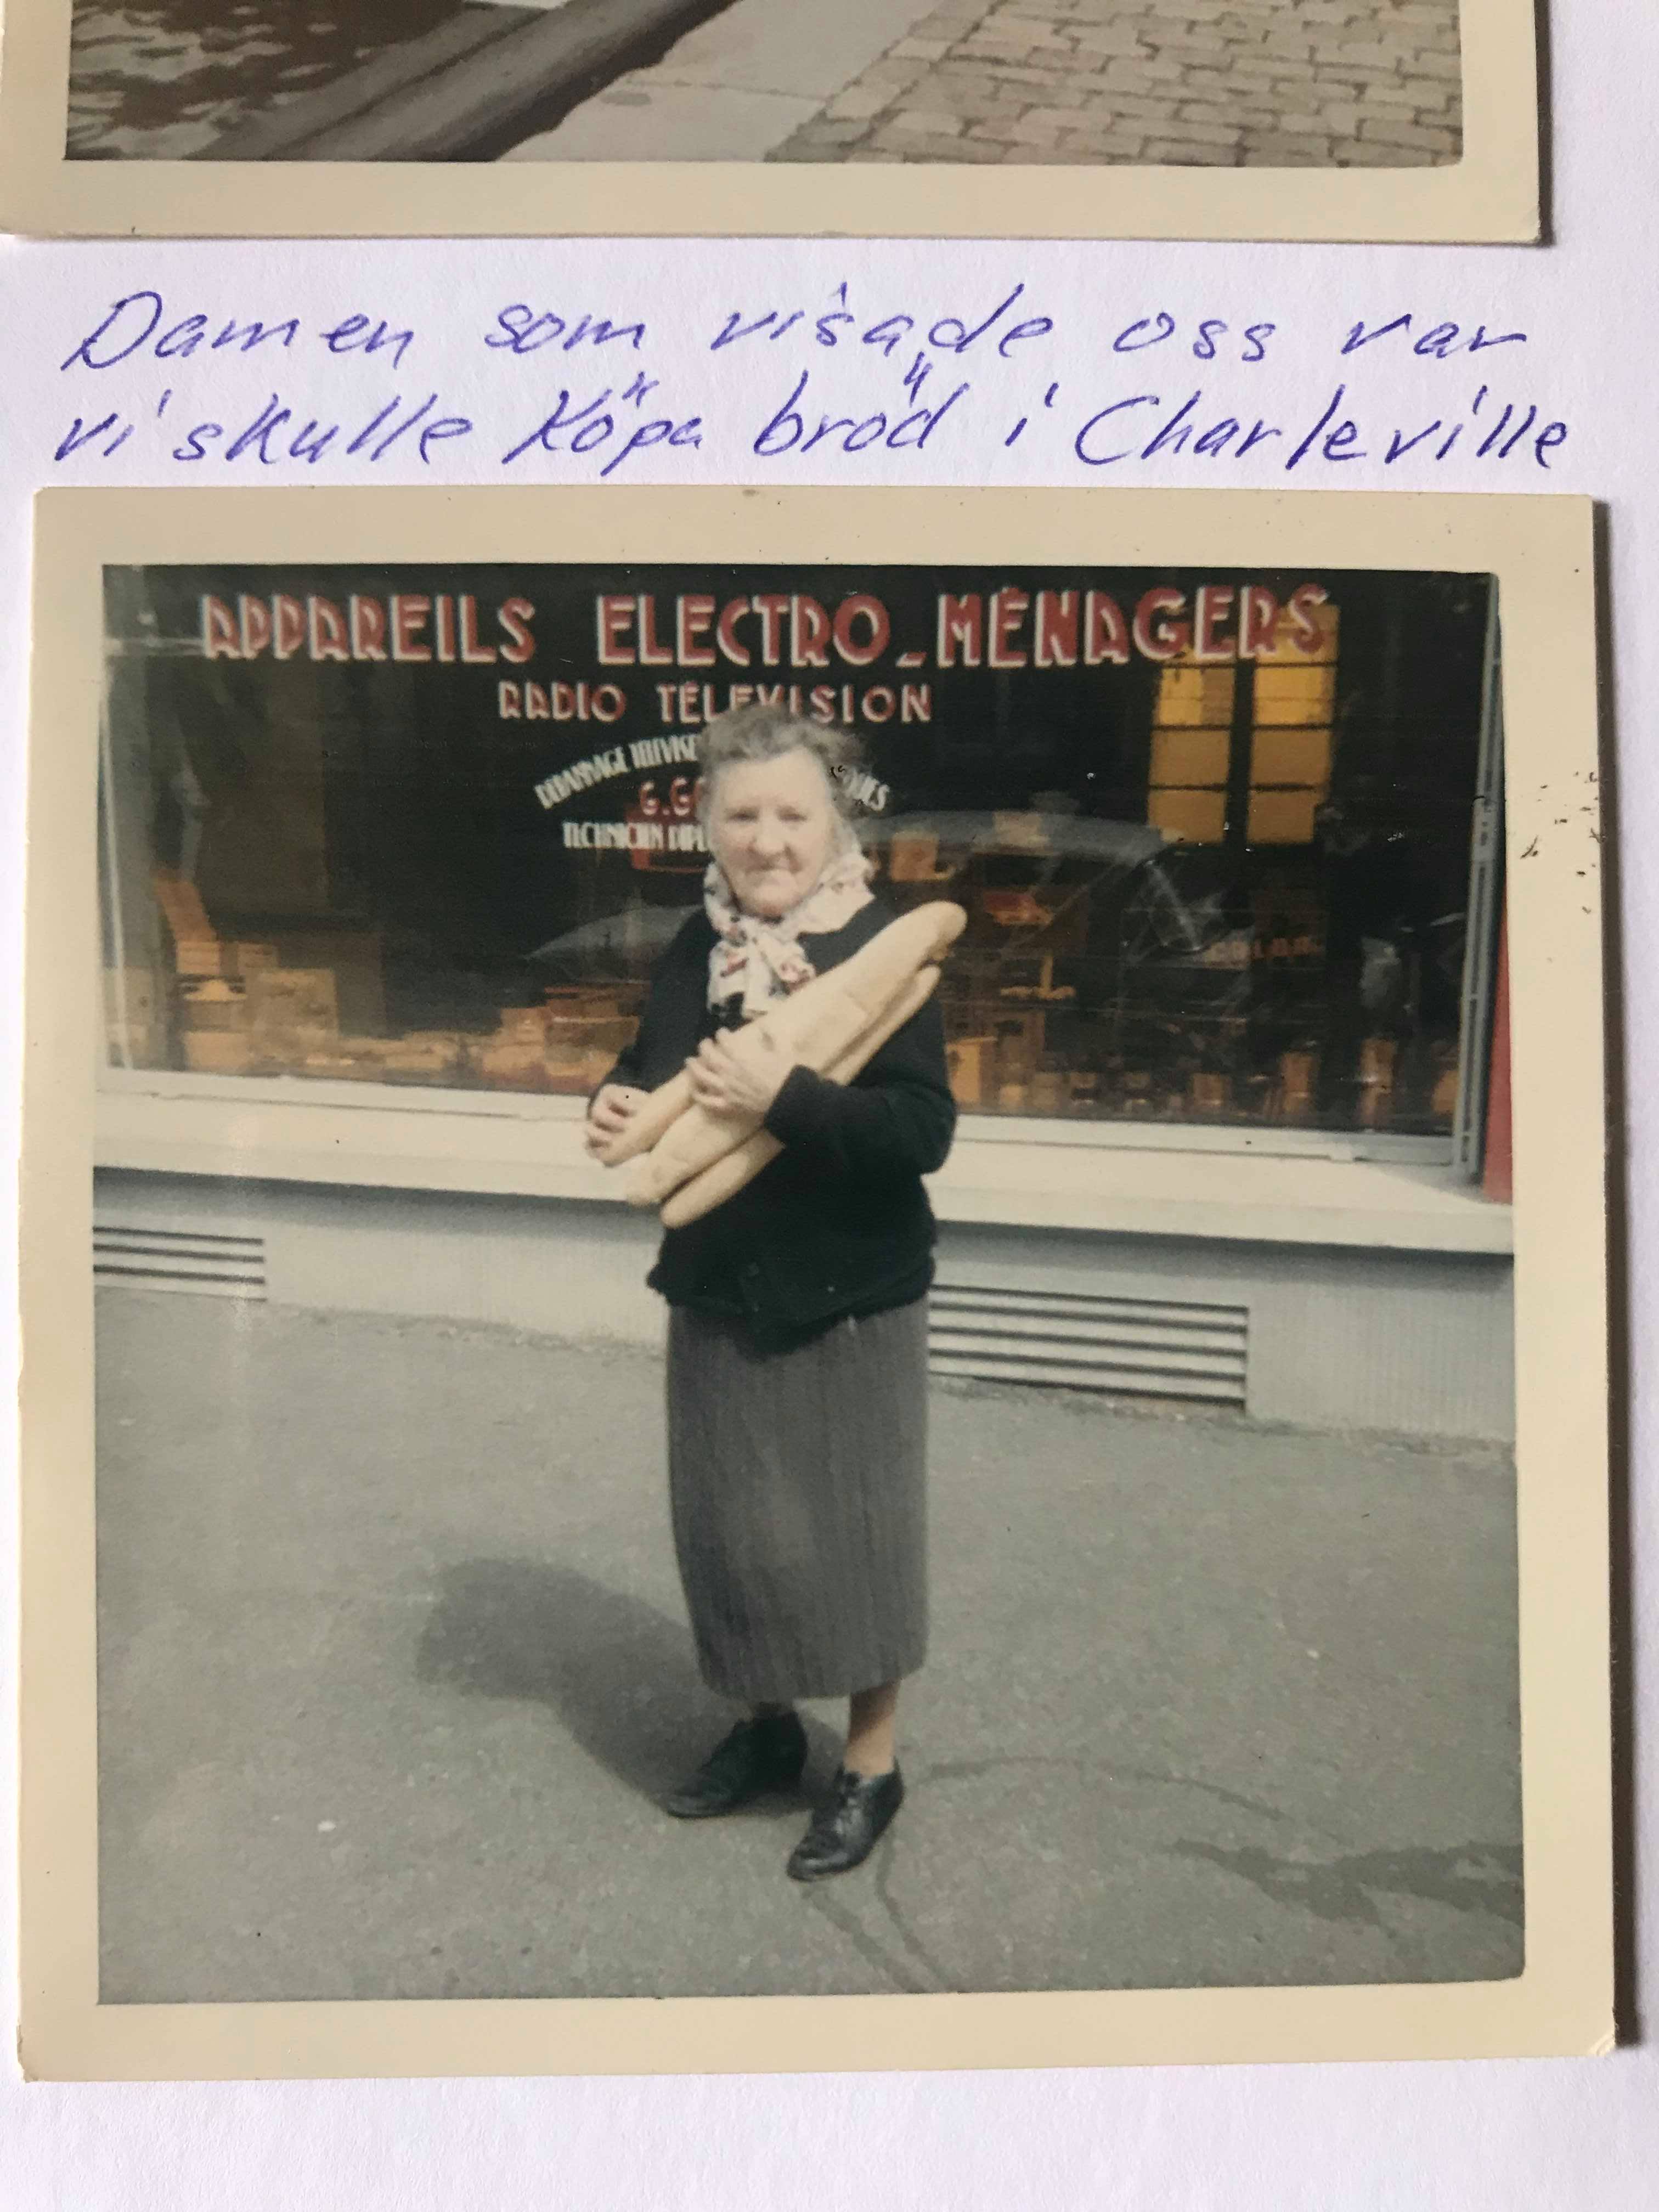 Damen som visade oss var
vi skulle köpa bröd i Charleville
APPAREILS ELECTRO-MÉNAGERS
RADIO TÉLÉVISION
DEPANNAGE
G.G
TECHNICIEN